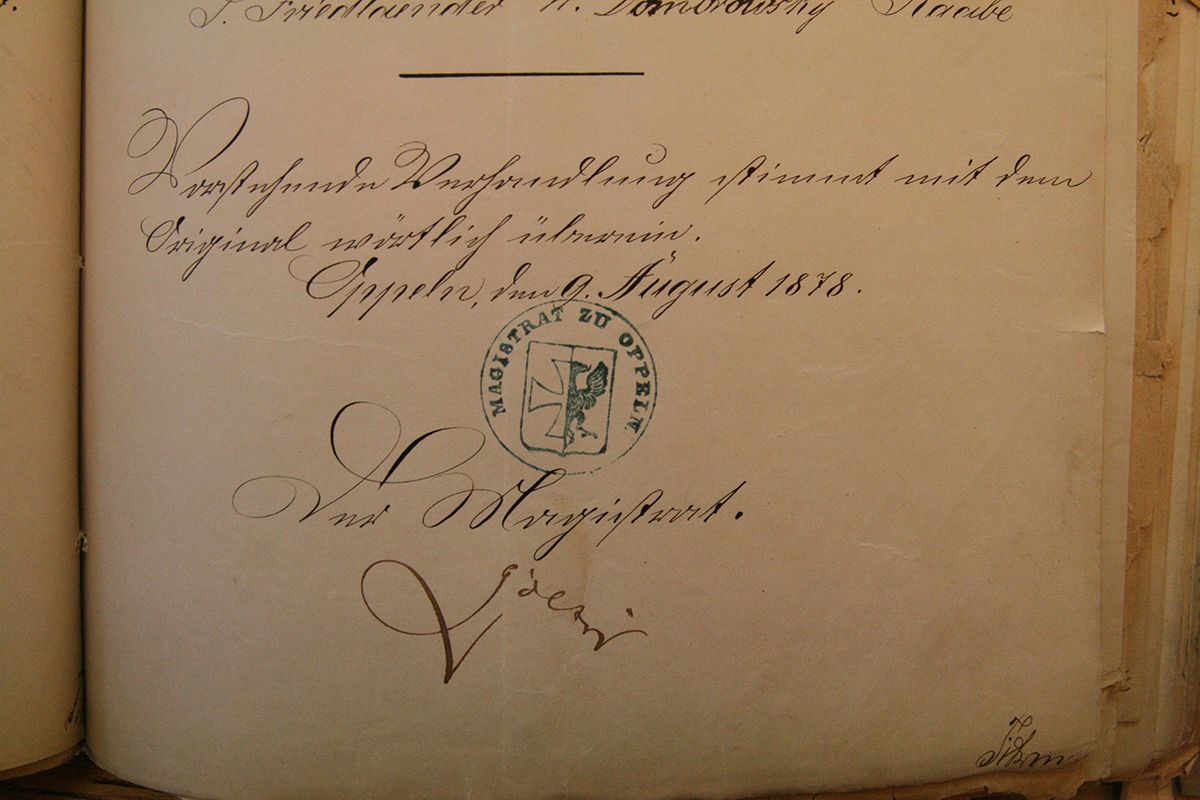 S. Friedlaender v. Domorowsky Raabe
Vorstehende Verhandlung stimmt mit dem
Original wörtlich überein.
Oppeln, den 9. August 1878.
MAGISTRAT ZU OPPELN
Der Magistrat.